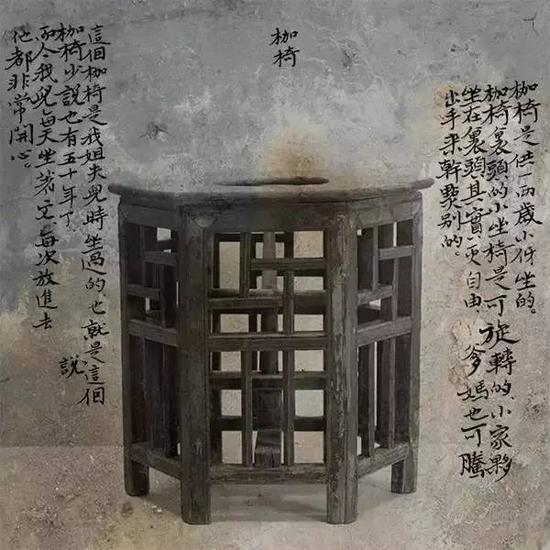 枷椅是供一兩歲小伢坐的。
枷椅裏頭的小坐椅是可旋轉的小家夥
坐在裏頭其實頂自由，爹媽也可騰
出手来幹點別的。
枷椅
這個枷椅是我姐夫兒時坐過的，也就是這個
說
枷椅少說也有五十年了
而今我兒每天坐著它，每次放進去
他都非常開心。